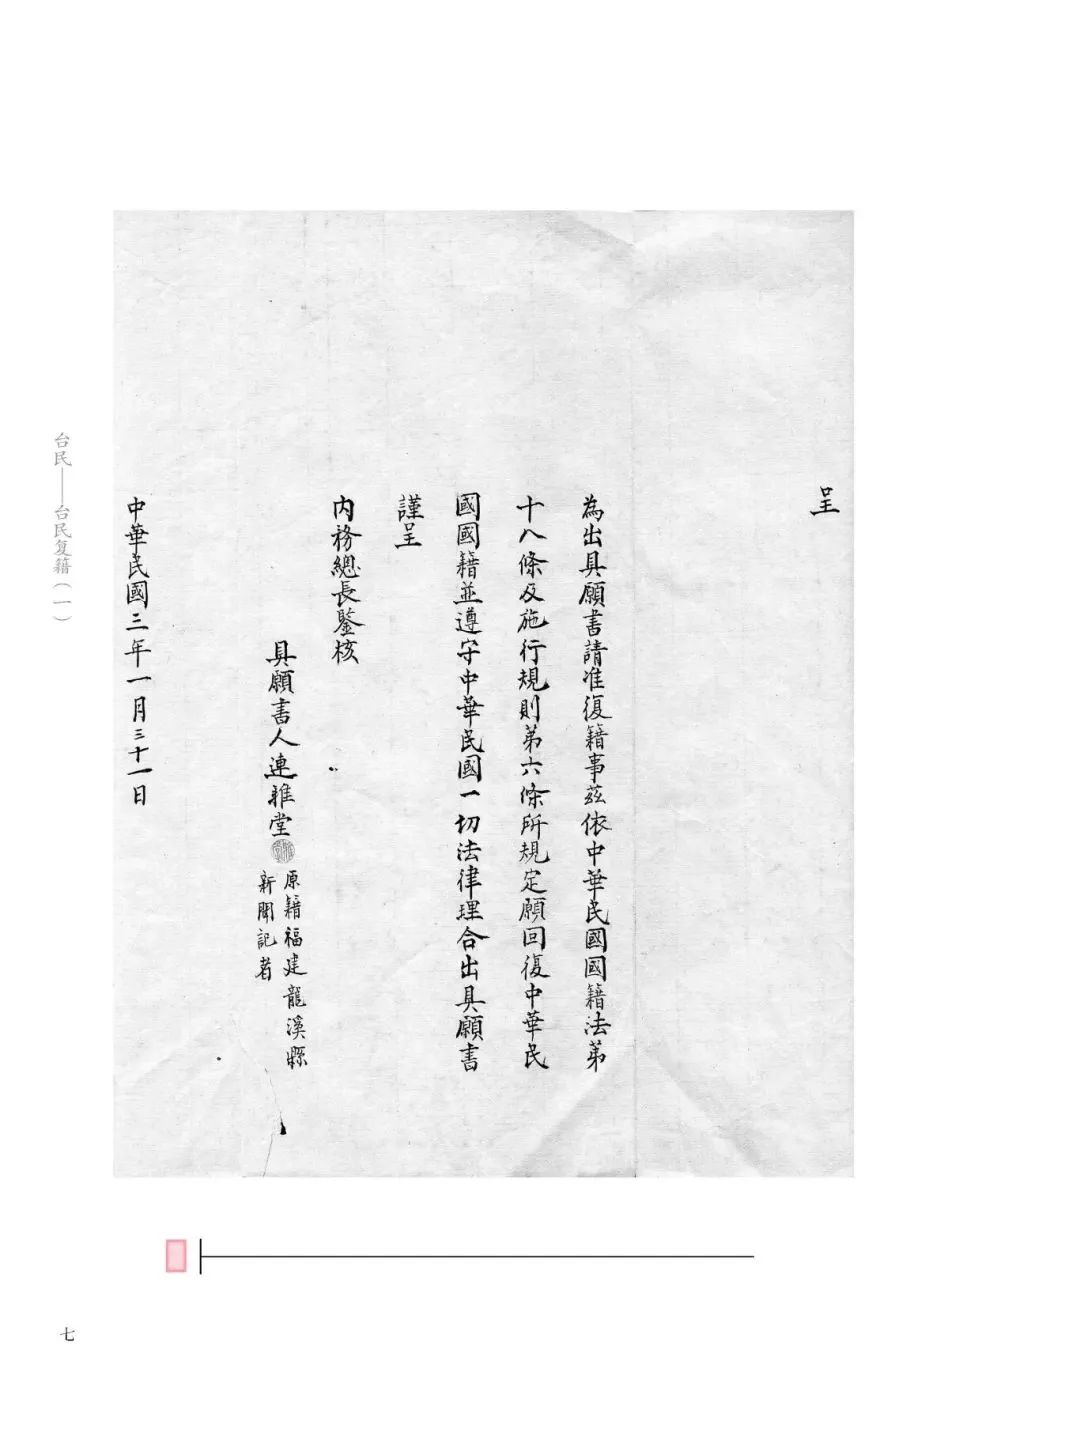 呈
為出具願書請准復籍事茲依中華民國國籍法第
十八條及施行規則第六條所規定願回復中華民
國國籍並遵守中華民國一切法律理合出具願書
謹呈
內務總長鑒核
具願書人連雅堂
原籍福建龍溪縣
新聞記者
中華民國三年一月三十一日
台民——台民复籍（一）
七